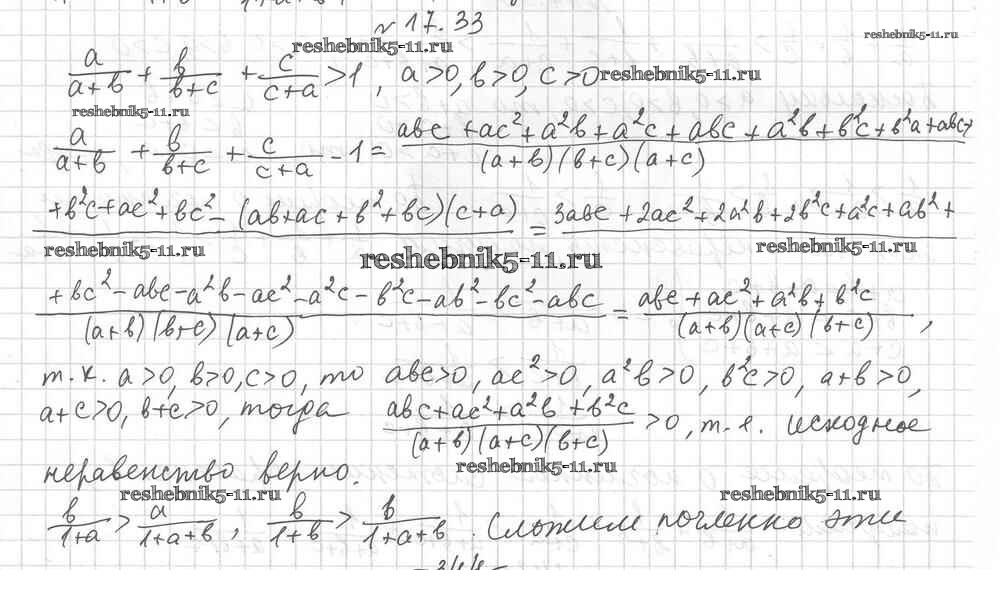 № 17.33
reshebnik5-11.ru
reshebnik5-11.ru
a/(a+b) + b/(b+c) + c/(c+a) > 1, a>0, b>0, c>0
reshebnik5-11.ru
reshebnik5-11.ru
a/(a+b) + b/(b+c) + c/(c+a) - 1 = (abc + ac² + a²b + a²c + abc + a²b + b²c + b²a + abc+
+b²c+ac²+bc² - (ab+ac+b²+bc)(c+a) = 3abc+2ac²+2a²b+2b²c+a²c+ab²+
reshebnik5-11.ru
reshebnik5-11.ru
reshebnik5-11.ru
+bc²-abc-a²b-ac²-a²c-b²c-ab²-bc²-abc / (a+b)(b+c)(a+c) = abc+ac²+a²b+b²c / (a+b)(a+c)(b+c),
т.к. a>0, b>0, c>0, то abc>0, ac²>0, a²b>0, b²c>0, a+b>0,
a+c>0, b+c>0, тогда abc+ac²+a²b+b²c / (a+b)(a+c)(b+c) >0, т.е. исходное
reshebnik5-11.ru
неравенство верно.
reshebnik5-11.ru
reshebnik5-11.ru
b/(1+a) > a/(1+a+b), b/(1+b) > b/(1+a+b). Сложим почленно эти